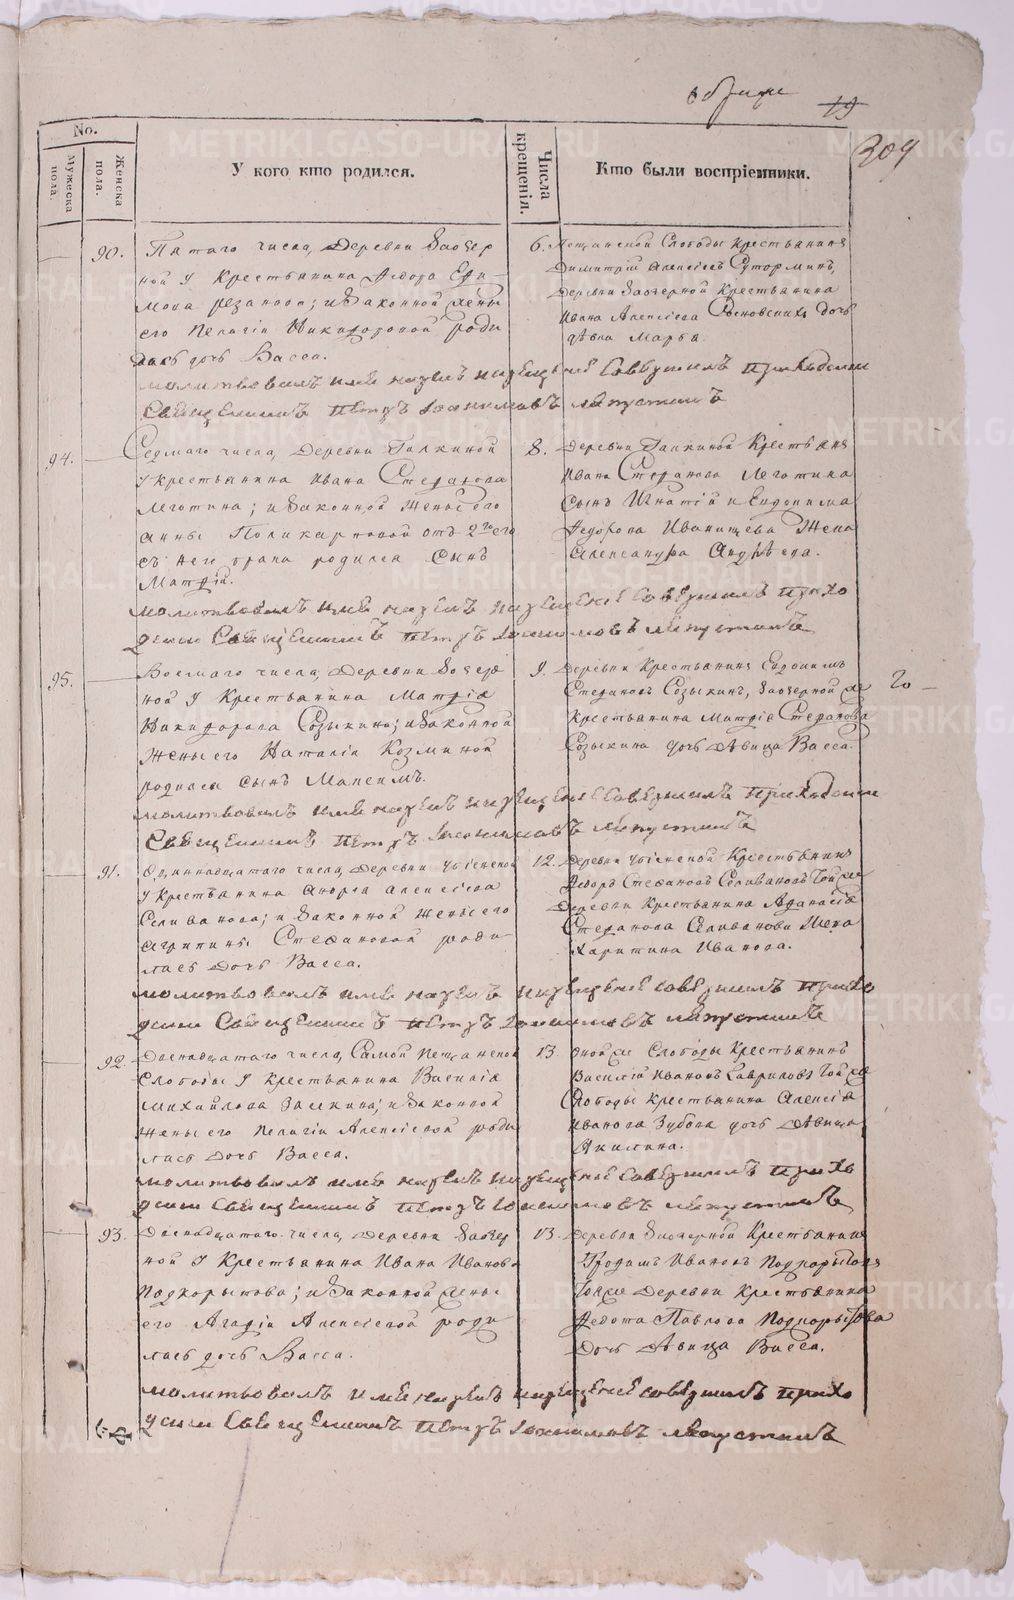 19
309
No.
Мужеска пола.
Женска пола.
У кого кто родился.
Числа крещенія.
Кто были воспріемники.
90.
Пятаго числа, Деревни Заозер
ной у Крестьянина Федора Ефи-
мова резанова; и Законной жены
его Пелагіи Никифоровой роди
лась дочь Васса.
6.
Пещанской Слободы Крестьянинъ
Димитрій Алексѣевъ Суторминъ,
Деревни Заозерной Крестьянина
Ивана Алексѣева дочь
дѣвка Марѳа.
молитвовалъ имя нарекъ и крещеніе совершилъ приходскій
Священникъ Петръ
94.
Седмаго числа, Деревни Галкиной
у крестьянина Ивана Стефанова
Леготина; и Законной Жены его
Анны Поликарповой отъ 2го его
съ нею брака родился сынъ
Матфій.
8.
Деревни Галкиной Крестьяне
Ивана Стефанова Леготина
Сынъ Игнатій и Евдокима
Федорова Иванищева Жена
Александра Андрѣева.
молитвовалъ имя нарекъ и крещеніе совершилъ прихо
дскій Священникъ Петръ
95.
Восмаго числа, Деревни Заозер
ной у Крестьянина Матфія
Никифорова Созыкина; и Законной
Жены его Наталіи Козминой
родился сынъ Максимъ.
9.
Деревни Крестьянинъ Евдокимъ
Стефановъ Созыкинъ, Заозерной же
Крестьянина Матфія Стефанова
Созыкина дочь дѣвица Васса.
молитвовалъ имя нарекъ и крещеніе совершилъ приходскій
Священникъ Петръ
91.
Одиннадцатаго числа, Деревни
у Крестьянина Андрея Алексѣева
Селиванова; и Законной Жены его
Агрипины Стефановой роди
лась Дочь Васса.
12.
Деревни Крестьянинъ
Федоръ Стефановъ Селивановъ Той же
Деревни Крестьянина Афанасія
Стефанова Селиванова Жена
Харитина Иванова.
молитвовалъ имя нарекъ и крещеніе совершилъ прихо
дскій Священникъ Петръ
92.
Двенадцатаго числа, Самой Пещанской
Слободы у Крестьянина Василія
Михайлова Заикина; и Законной
Жены его Пелагіи Алексѣевой роди
лась Дочь Васса.
13.
Оной же Слободы Крестьянинъ
Василій Ивановъ Гавриловъ Той же
Слободы Крестьянина Алексія
Иванова Зубова дочь Дѣвица
Акилина.
молитвовалъ имя нарекъ и крещеніе совершилъ прихо
дскій Священникъ Петръ
93.
Двенадцатаго числа, Деревни Заозер
ной у Крестьянина Ивана Иванова
Подкорытова; и Законной Жены
его Агафіи Алексѣевой роди
лась дочь Васса.
13.
Деревни Заозерной Крестьянинъ
Ивановъ Подкорытовъ
Той же Деревни Крестьянина
Федота Павлова Подкорытова
Дочь Дѣвица Васса.
молитвовалъ имя нарекъ и крещеніе совершилъ прихо
дскій Священникъ Петръ
METRIKI.GASO-URAL.RU